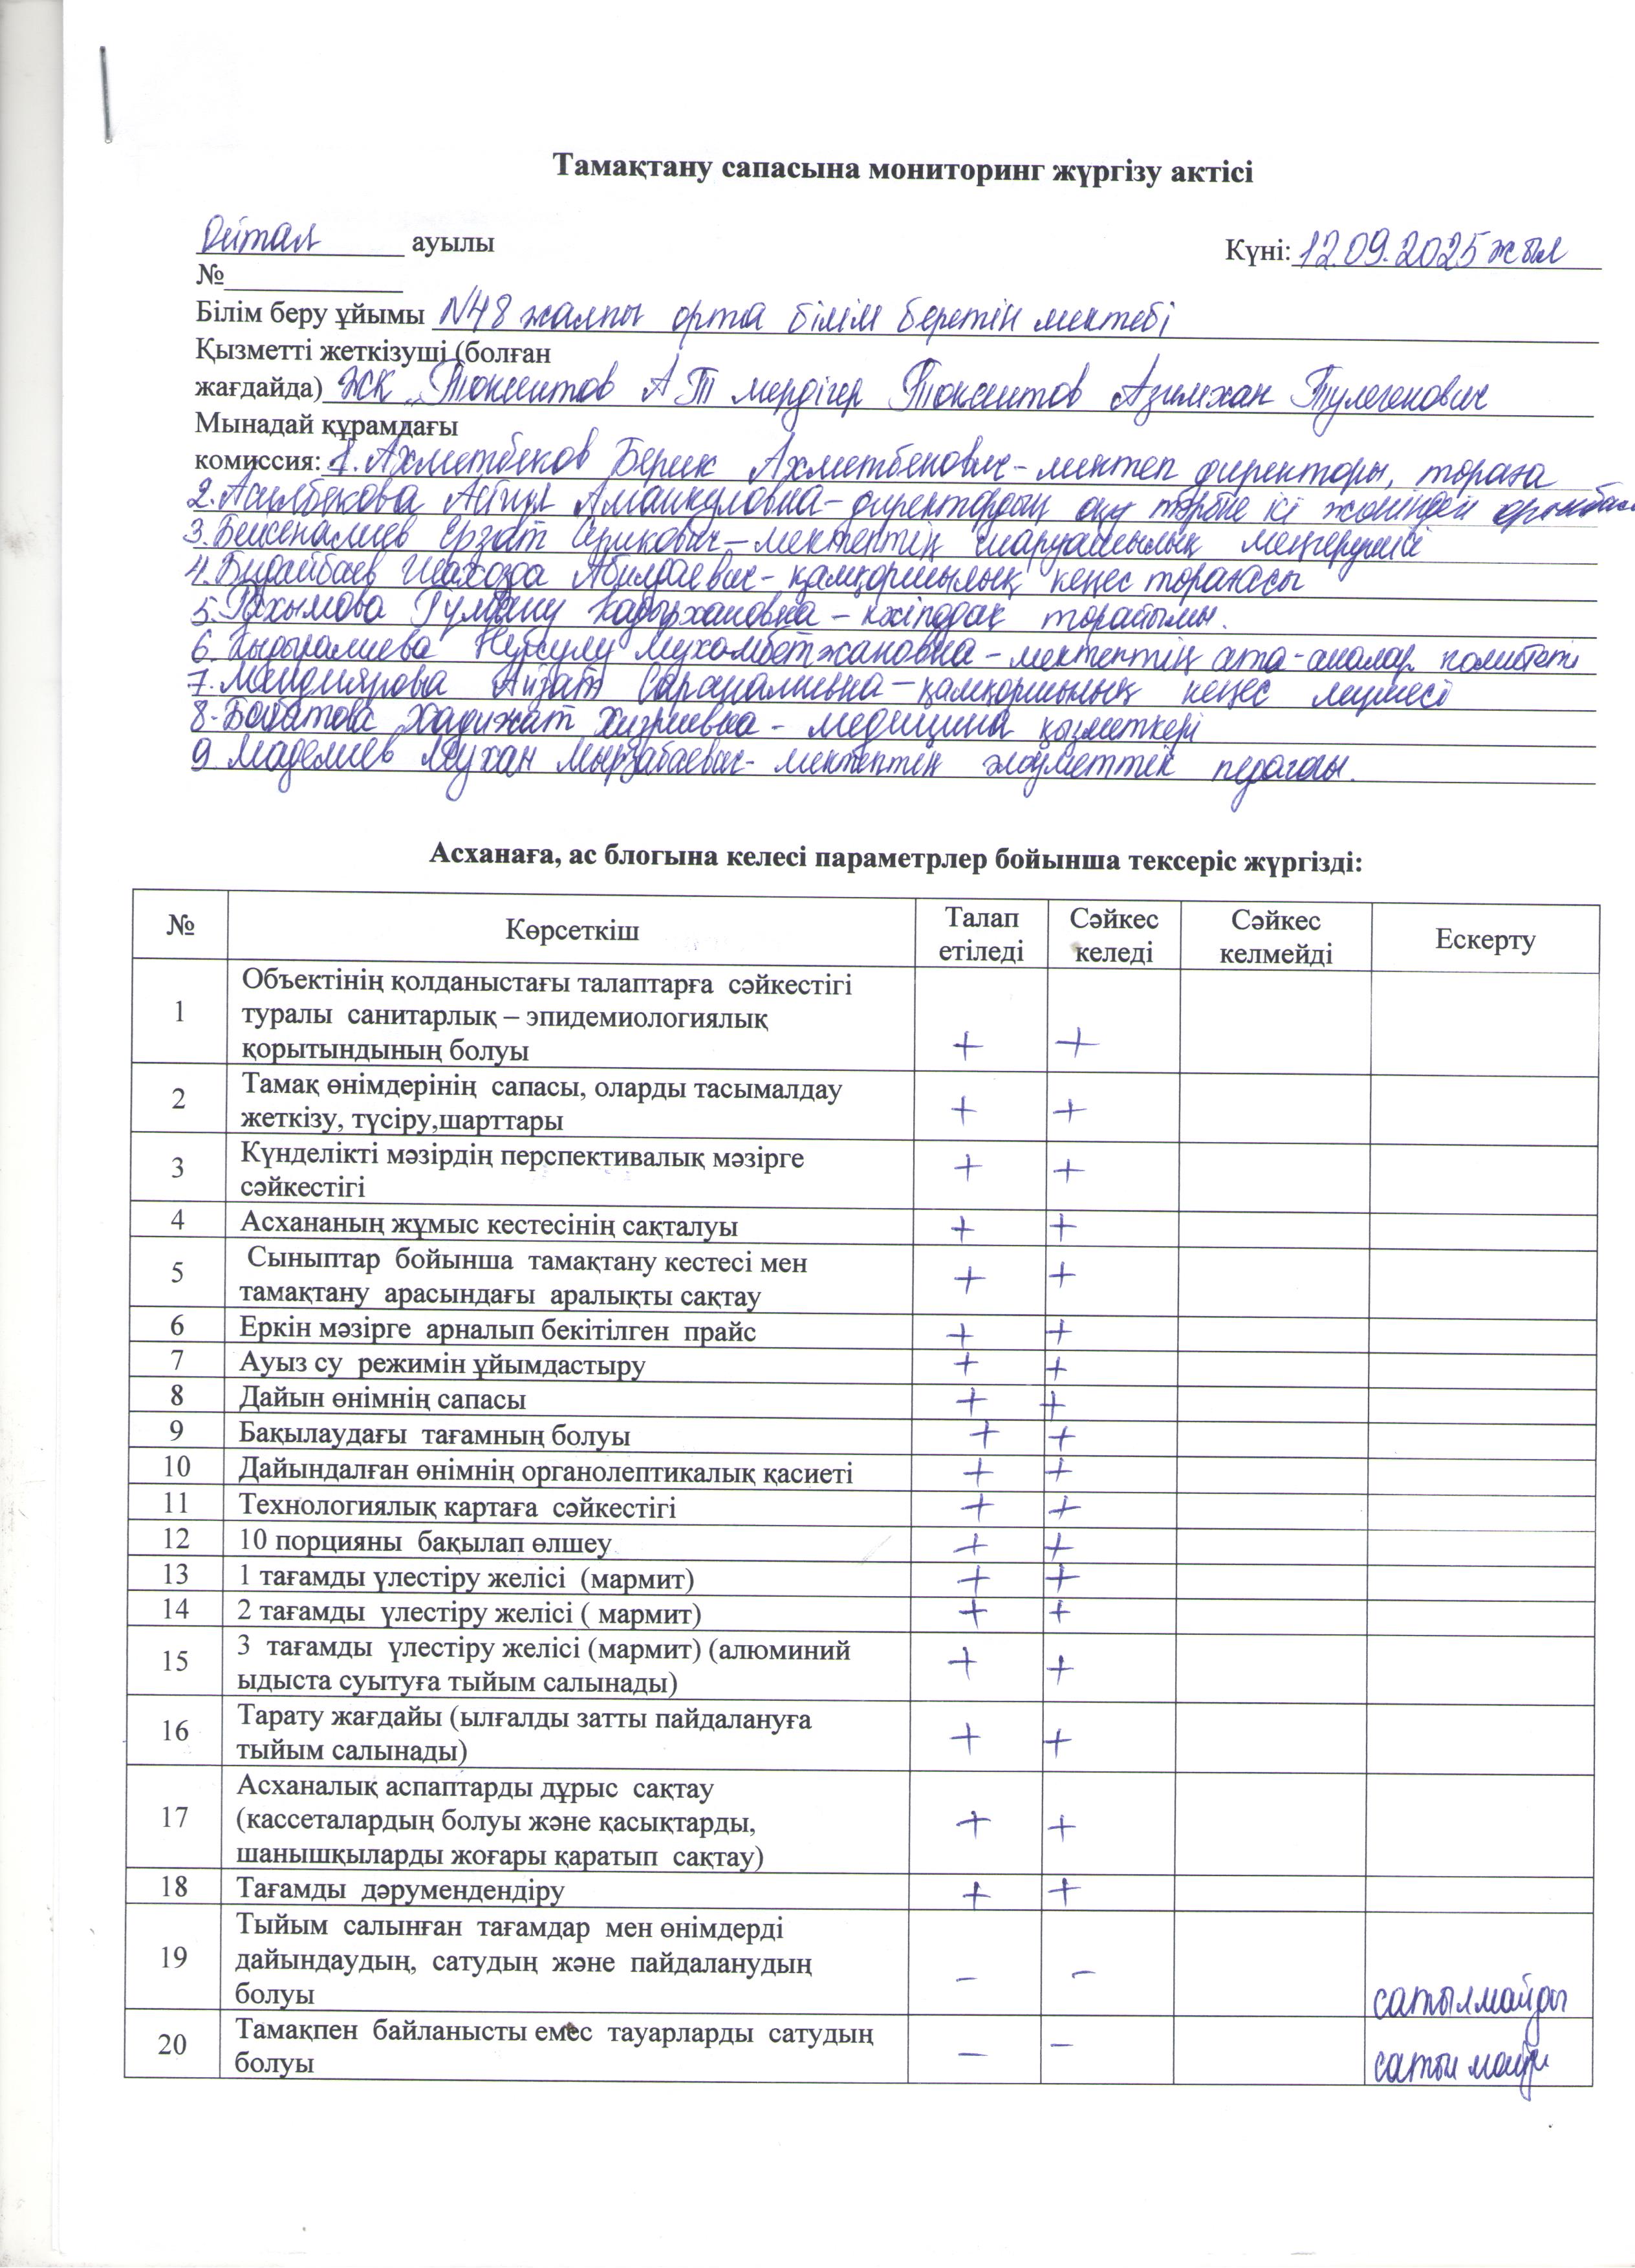 Тамақтану сапасына мониторинг жүргізу актісі
Ойтал ауылы
Күні: 12.09.2025 жыл
№
Білім беру ұйымы №48 жалпы орта білім беретін мектебі
Қызметті жеткізуші (болған
жағдайда) ЖК "Токсеитов А Т мердігер Токсеитов Азимхан Тулегенович
Мынадай құрамдағы
комиссия: 1. Ахметбеков Берик Ахметбекович - мектеп директоры, төраға
2. Асилбекова Аманкуловна - директордың оқу тәрбие ісі жөніндегі орынбасары
3. Бейсеналиев Ерзат Серикович - мектептің шаруашылық меңгерушісі
4. Абилдаевич - қамқоршылық кеңес төрағасы
5. Рахымова Гулбану - кәсіподақ төрайымы.
6. Кыдыралиева Мухамбетжановна - мектептің ата-аналар комитеті
7. Айзат - қамқоршылық кеңес мүшесі
8. Хадижат - медицина қызметкері
9. Маделиев Мырзабаевич - мектептің әлеуметтік педагогы.
Асханаға, ас блогына келесі параметрлер бойынша тексеріс жүргізді:
№ Көрсеткіш Талап етіледі Сәйкес келеді Сәйкес келмейді Ескерту
1 Объектінің қолданыстағы талаптарға сәйкестігі
туралы санитарлық – эпидемиологиялық
қорытындының болуы + +
2 Тамақ өнімдерінің сапасы, оларды тасымалдау
жеткізу, түсіру,шарттары + +
3 Күнделікті мәзірдің перспективалық мәзірге
сәйкестігі + +
4 Асхананың жұмыс кестесінің сақталуы + +
5 Сыныптар бойынша тамақтану кестесі мен
тамақтану арасындағы аралықты сақтау + +
6 Еркін мәзірге арналып бекітілген прайс + +
7 Ауыз су режимін ұйымдастыру + +
8 Дайын өнімнің сапасы + +
9 Бақылаудағы тағамның болуы + +
10 Дайындалған өнімнің органолептикалық қасиеті + +
11 Технологиялық картаға сәйкестігі + +
12 10 порцияны бақылап өлшеу + +
13 1 тағамды үлестіру желісі (мармит) + +
14 2 тағамды үлестіру желісі ( мармит) + +
15 3 тағамды үлестіру желісі (мармит) (алюминий
ыдыста суытуға тыйым салынады) + +
16 Тарату жағдайы (ылғалды затты пайдалануға
тыйым салынады) + +
17 Асханалық аспаптарды дұрыс сақтау
(кассеталардың болуы және қасықтарды,
шанышқыларды жоғары қаратып сақтау) + +
18 Тағамды дәрумендендіру + +
19 Тыйым салынған тағамдар мен өнімдерді
дайындаудың, сатудың және пайдаланудың
болуы - - сатылмайды
20 Тамақпен байланысты емес тауарларды сатудың
болуы - - сатылмайды